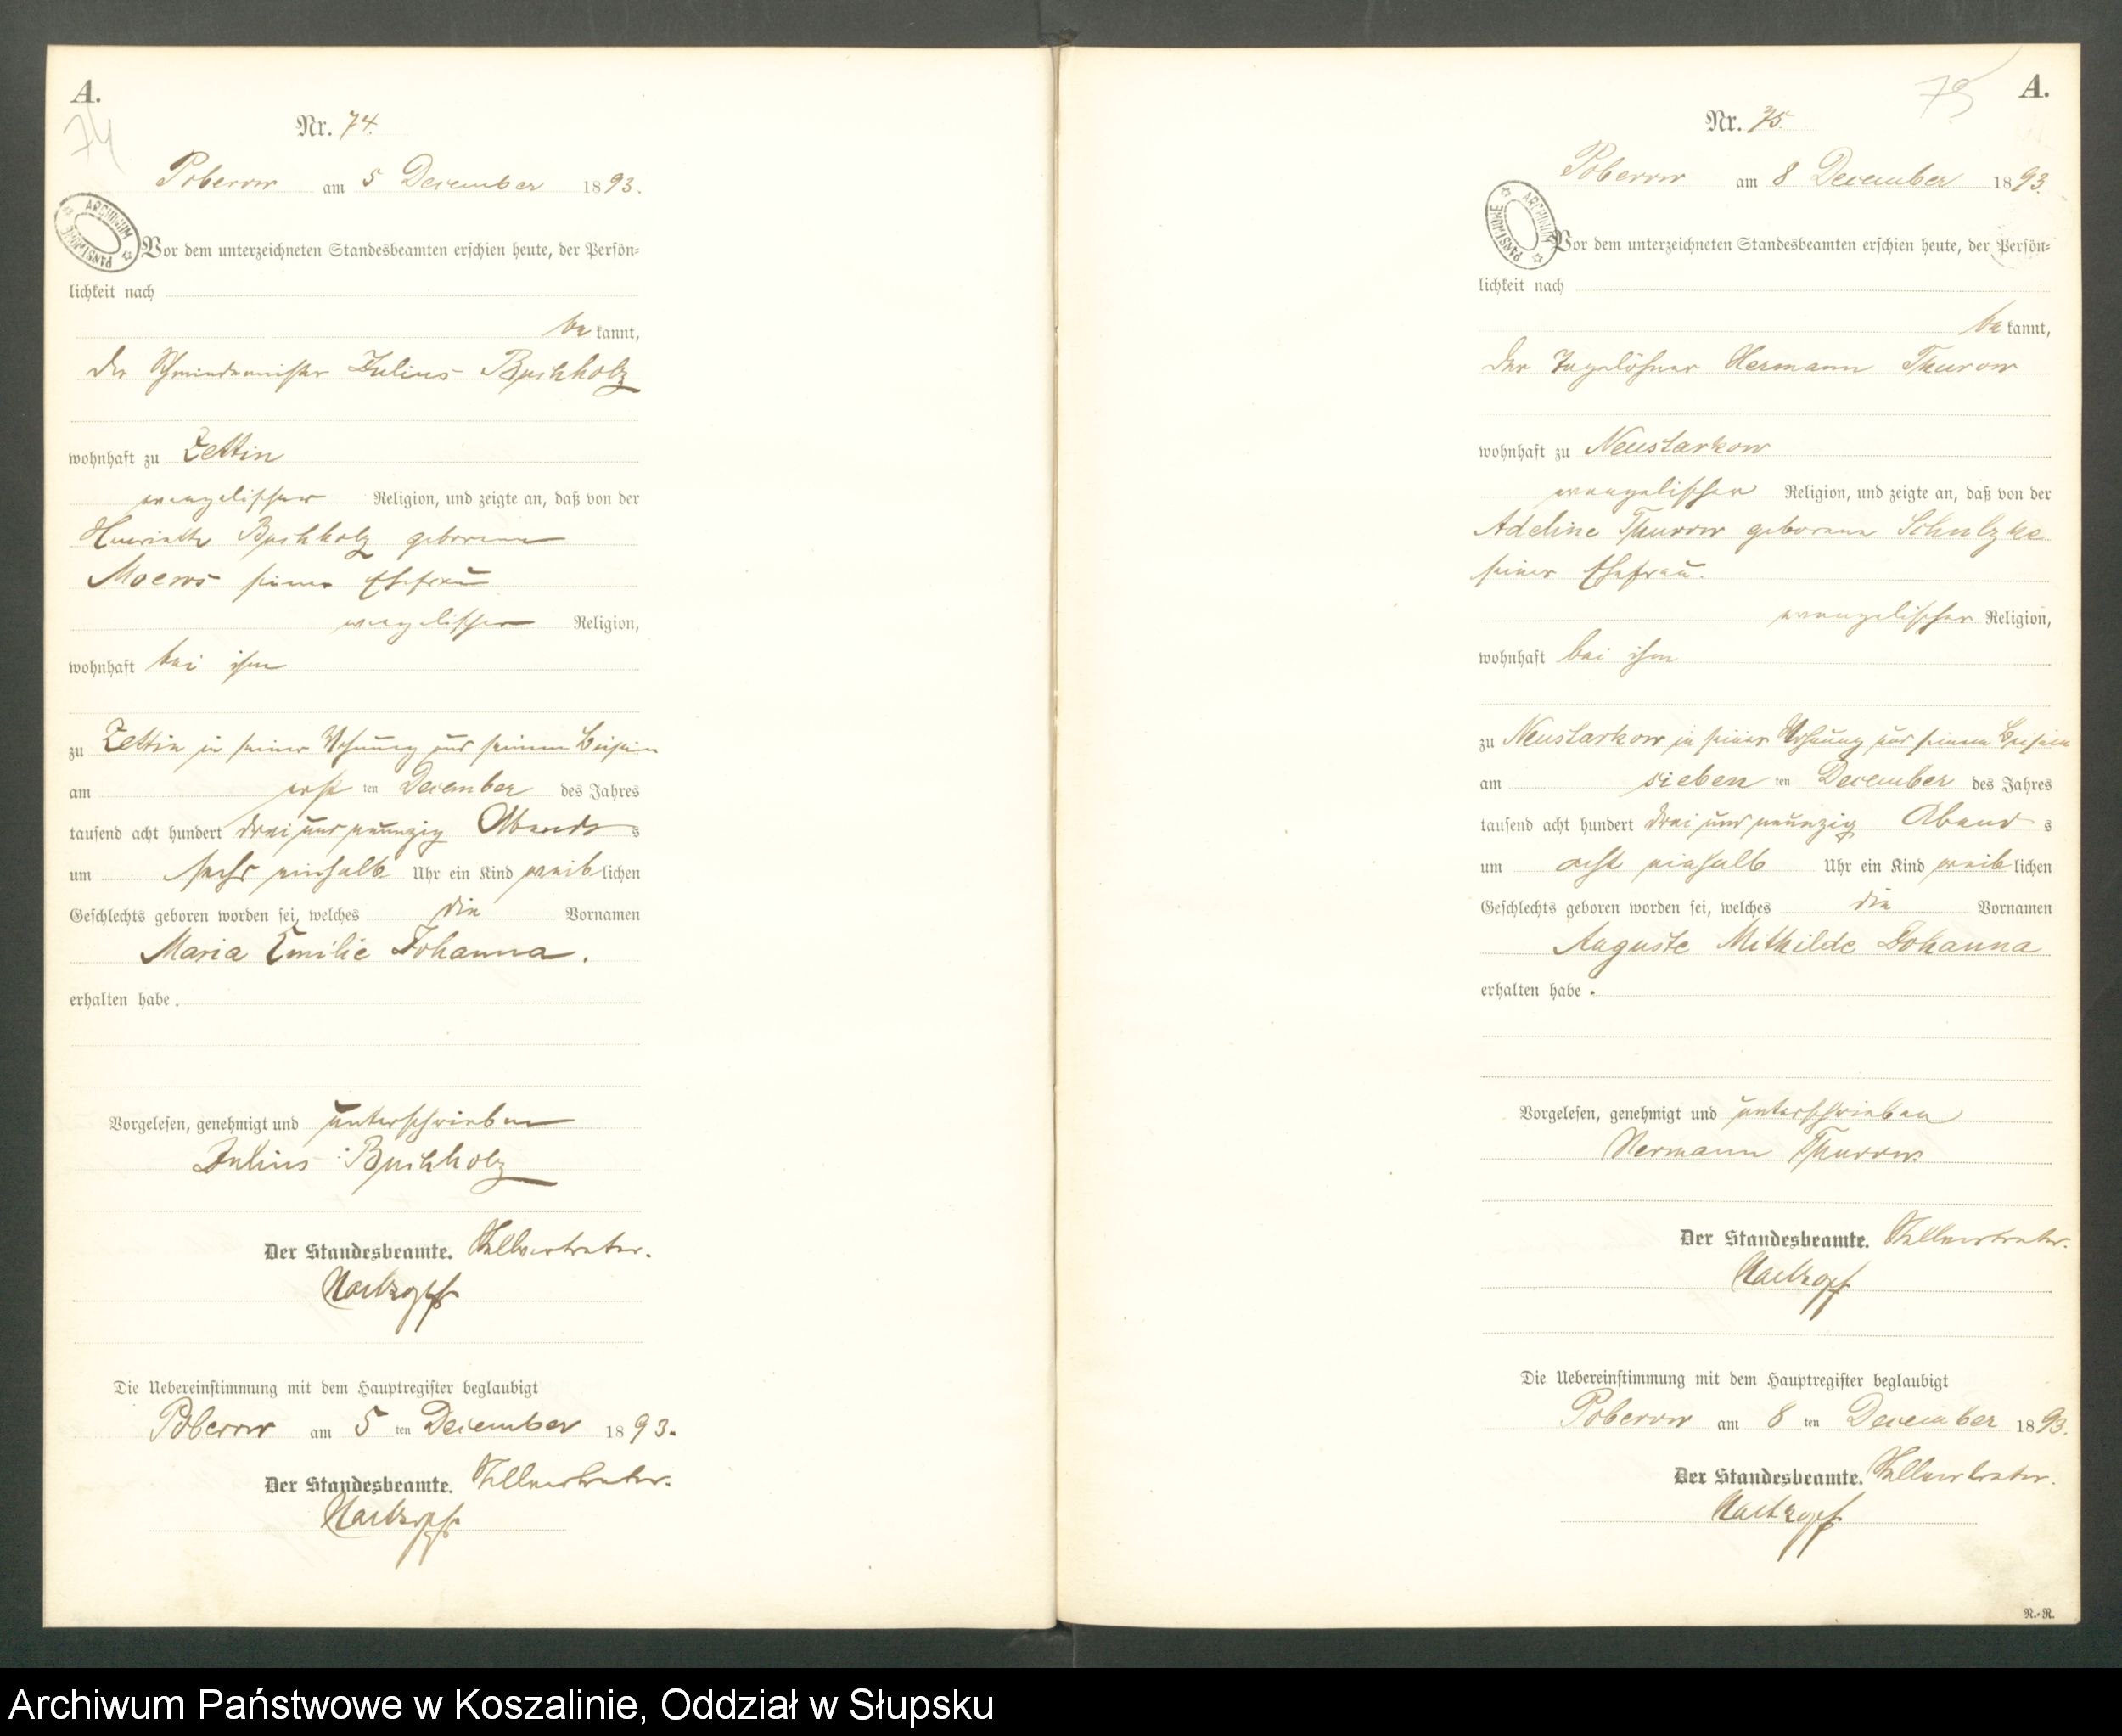 A.
74
Nr. 74.
Poberow am 5 December 1893.
ARCHIWUM PAŃSTWOWE
Vor dem unterzeichneten Standesbeamten erschien heute, der Persön=
lichkeit nach
be kannt,
der Schmiedemeister Julius Buchholz
wohnhaft zu Zettin
evangelischer Religion, und zeigte an, daß von der
Henriette Buchholz geborene
Moews seiner Ehefrau
evangelischer Religion,
wohnhaft bei ihm
zu Zettin in seiner Wohnung und seinem Beisein
am erst ten December des Jahres
tausend acht hundert drei und neunzig Abends s
um sechs einhalb Uhr ein Kind weib lichen
Geschlechts geboren worden sei, welches die Vornamen
Maria Emilie Johanna.
erhalten habe.
Vorgelesen, genehmigt und unterschrieben
Julius Buchholz
Der Standesbeamte. Stellvertreter.
Die Uebereinstimmung mit dem Hauptregister beglaubigt
Poberow am 5 ten December 1893.
Der Standesbeamte. Stellvertreter.
75
A.
Nr. 75.
Poberow am 8 December 1893.
ARCHIWUM PAŃSTWOWE
Vor dem unterzeichneten Standesbeamten erschien heute, der Persön=
lichkeit nach
be kannt,
der Tagelöhner Hermann Thurow
wohnhaft zu Neustarkow
evangelischer Religion, und zeigte an, daß von der
Adeline Thurow geborene Schulzke
seiner Ehefrau.
evangelischer Religion,
wohnhaft bei ihm
zu Neustarkow in seiner Wohnung und seinem Beisein
am sieben ten December des Jahres
tausend acht hundert drei und neunzig Abend s
um acht einhalb Uhr ein Kind weib lichen
Geschlechts geboren worden sei, welches die Vornamen
Auguste Mithilde Johanna
erhalten habe.
Vorgelesen, genehmigt und unterschrieben
Hermann Thurow.
Der Standesbeamte. Stellvertreter.
Die Uebereinstimmung mit dem Hauptregister beglaubigt
Poberow am 8 ten December 1893.
Der Standesbeamte. Stellvertreter.
R.=R.
Archiwum Państwowe w Koszalinie, Oddział w Słupsku